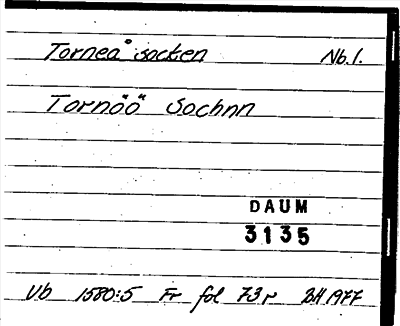 Torneå socken Nb.l.
Tornöö Sochnn
DAUM
3135
Vb 1580:5 Fr fol 73r BH 1977